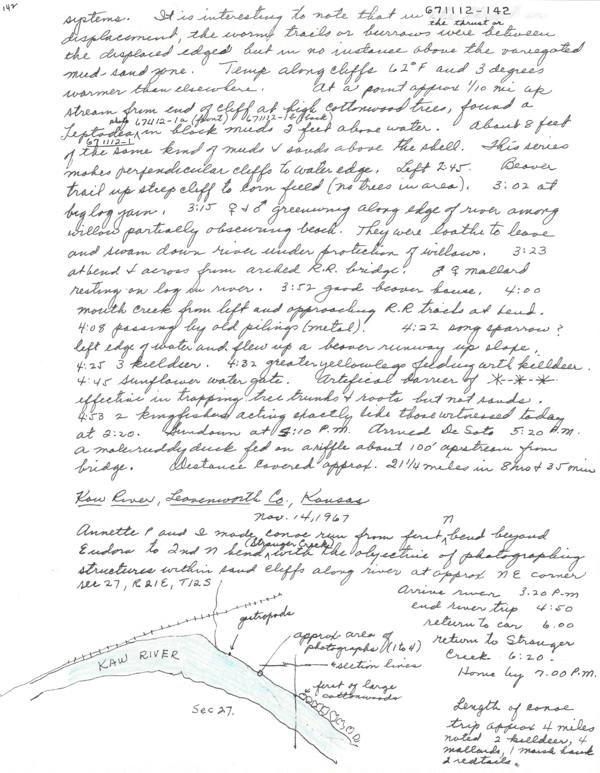 142
671112-142
systems. It is interesting to note that in the thrust or
displacement, the worm trails or burrows were between
the displaced edges but in no instance above the variegated
mud-sand zone. Temp along cliffs 62°F and 3 degrees
warmer than elsewhere. At a point approx 1/10 mi up
stream from end of cliff at high cottonwood trees, found a
photo 67112-1a (front) 671112-1b (back)
Leptodea in black muds 2 feet above water. About 8 feet
671112-1
of the same kind of muds & sands above the shell. This series
makes perpendicular cliffs to water edge. Left 2:45. Beaver
trail up steep cliff to corn field (no trees in area). 3:02 at
big log jam. 3:15 ♀ & ♂ greenwing along edge of river among
willow partially obscuring beach. They were loathe to leave
and swam down river under protection of willows. 3:23
at bend & across from arched R.R. bridge. ♂ ♀ mallard
resting on log in river. 3:52 good beaver house. 4:00
mouth creek from left and approaching R.R. tracks at bend.
4:08 passing by old pilings (metal). 4:22 song sparrow?
left edge of water and flew up a beaver runway up slope.
4:25 3 killdeer. 4:32 greater yellowlegs feeding with killdeer.
4:45 Sunflower water gate. Artifical barrier of *-*-*
effective in trapping tree trunks & roots but not sands.
4:53 2 kingfishers acting exactly like those witnessed today
at 2:20. Sundown at 5:10 P.M. Arrived De Soto 5:20 P.M.
a male ruddy duck fed on a riffle about 100' upstream from
bridge. Distance covered approx. 21 1/4 miles in 8 hrs & 35 min
Kaw River, Leavenworth Co., Kansas
Nov. 14, 1967
Annette P and I made canoe run from first N bend beyond
Eudora to 2nd N bend (Stranger Creek) with the objective of photographing
structures within sand cliffs along river at approx NE corner
sec 27, R21E, T12S
Arrive river 3.20 P.M
end river trip 4:50
return to car 6.00
return to Stranger
Creek 6:20.
Home by 7.00 P.M.
Length of canoe
trip approx 4 miles
noted 2 killdeer, 4
mallards, 1 marsh hawk
2 redtails.
gastropods
approx area of
photographs (1to4)
section lines
first of large
cottonwoods
KAW RIVER
Sec 27.